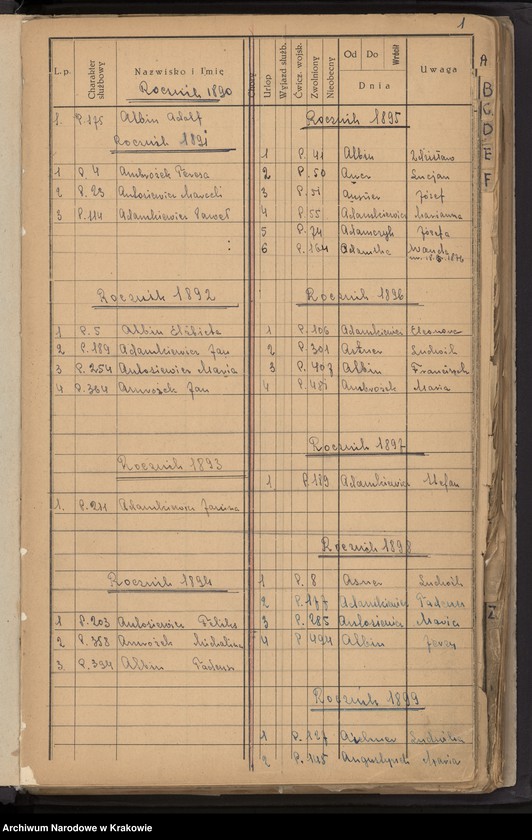 1
L.p.
Charakter służbowy
Nazwisko i Imię
Chory
Urlop
Wyjazd służb.
Ćwicz. wojsk.
Zwolniony
Nieobecny
Od
Do
Wrócił
Dnia
Uwaga
Rocznik 1890
1. P.175 Albin Adolf
Rocznik 1891
1 P.4 Ambrożek Teresa
2 P.23 Antosiewicz
3 P.114 Adamkiewicz Paweł
Rocznik 1892
1 P.5 Albin Elżbieta
2 P.189 Adamkiewicz Jan
3 P.254 Antosiewicz Maria
4 P.364 Jan
Rocznik 1893
1. P.211 Adamkiewicz Janina
Rocznik 1894
1 P.203 Antosiewicz
2 P.388 Michalina
3 P.394 Albin
Rocznik 1895
1 P.41 Albin Zdzisław
2 P.50 Lucjan
3 P.51 Józef
4 P.55 Adamkiewicz Marianna
5 P.74 Adamczyk Józefa
6 P.164 Adamska Wanda
Rocznik 1896
1 P.106 Adamkiewicz Eleonora
2 P.301 Ludwik
3 P.407 Albin Franciszek
4 Ambrożek Maria
Rocznik 1897
1 P.119 Adamkiewicz Stefan
Rocznik 1898
1 P.8 Asner Ludwik
2 P.177 Adamkiewicz Tadeusz
3 P.285 Antosiewicz Maria
4 P.494 Albin Jerzy
Rocznik 1899
1 P.127 Ludwika
2 P.145 Augustynek Maria
A
B
C
D
E
F
Z
Archiwum Narodowe w Krakowie